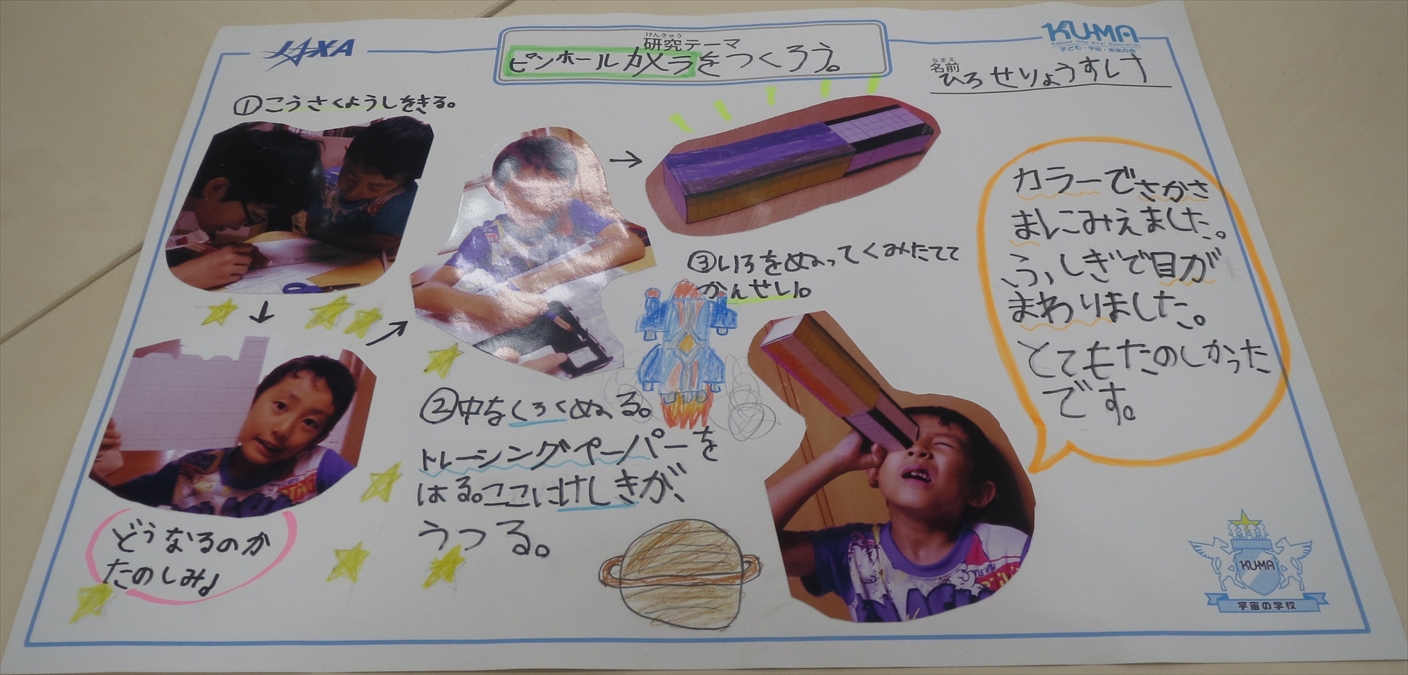 JAXA
けんきゅう
研究テーマ
ピンホールカメラをつくろう。
KU-MA
子ども・宇宙・未来の会
なまえ
名前
ひろせりょうすけ
①こうさくようしをきる。
③いろをぬってくみたてて
かんせい。
②中をくろくぬる。
トレーシングペーパーを
はる。ここにけしきが、
うつる。
どうなるのか
たのしみ♩
カラーでさかさ
まにみえました。
ふしぎで目が
まわりました。
とてもたのしかった
です。
KU-MA
宇宙の学校